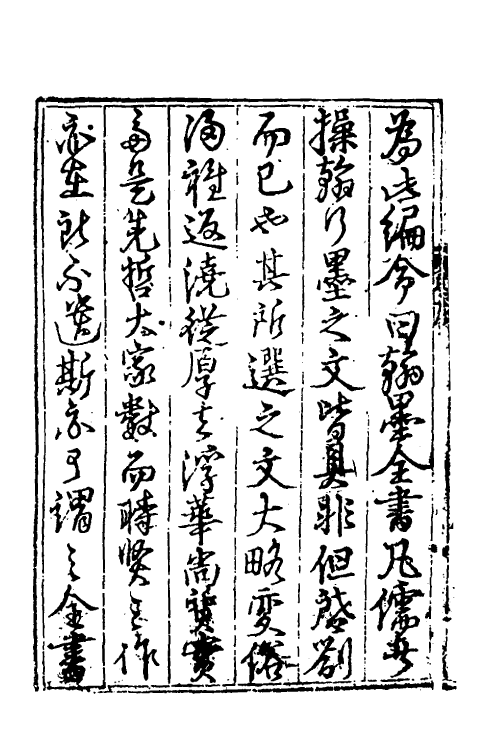 為此編命曰翰墨全書凡儒者
操翰行墨之文皆具非但啓劄
而已也其所選之文大略変俗
渢雅返澆從厚去浮華尚質實
多是先哲大家數而時賢之作
亦在所不遺斯亦可謂之全書